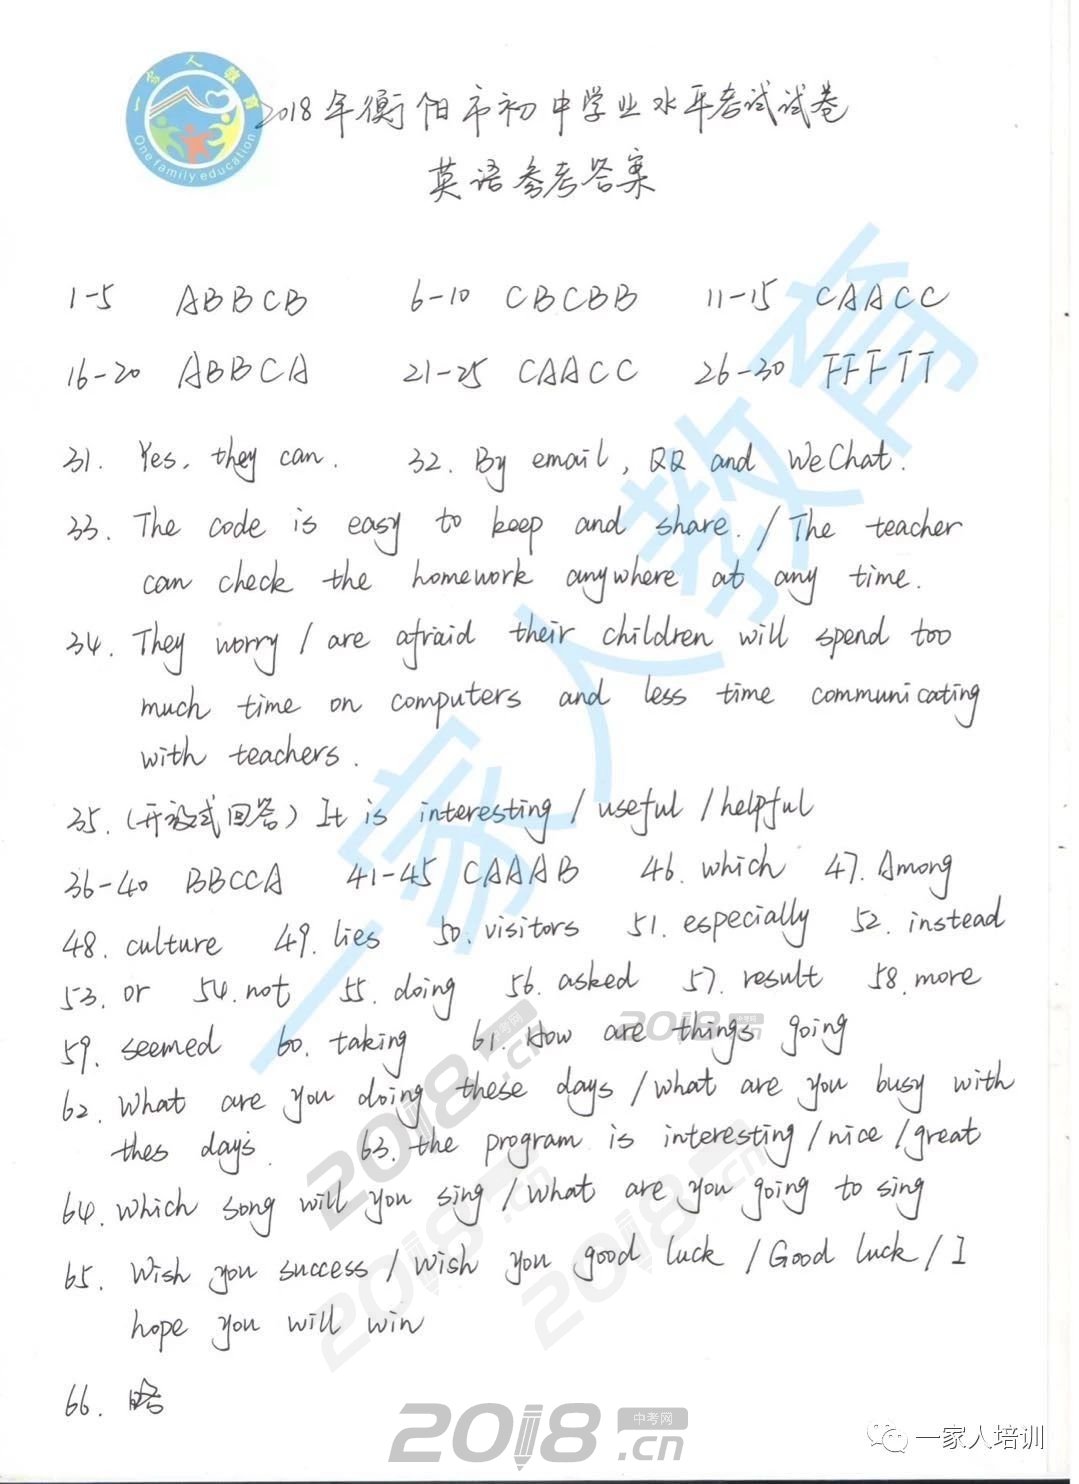 一家人教育
One family education
2018年衡阳市初中学业水平考试试卷
英语参考答案
1-5 ABBCB 6-10 CBCBB 11-15 CAACC
16-20 ABBCA 21-25 CAACC 26-30 FFFTT
31. Yes, they can. 32. By email, QQ and WeChat.
33. The code is easy to keep and share. / The teacher
can check the homework anywhere at any time.
34. They worry / are afraid their children will spend too
much time on computers and less time communicating
with teachers.
35. (开放式回答) It is interesting / useful / helpful
36-40 BBCCA 41-45 CAAAB 46. which 47. Among
48. culture 49. lies 50. visitors 51. especially 52. instead
53. or 54. not 55. doing 56. asked 57. result 58. more
59. seemed 60. taking 61. How are things going
62. What are you doing these days / what are you busy with
thes days. 63. the program is interesting / nice / great
64. which song will you sing / what are you going to sing
65. Wish you success / Wish you good luck / Good luck / I
hope you will win
66. 略
一家人教育
2018.cn
2018中考网.cn
2018.cn
2018.cn
2018中考网.cn
一家人培训